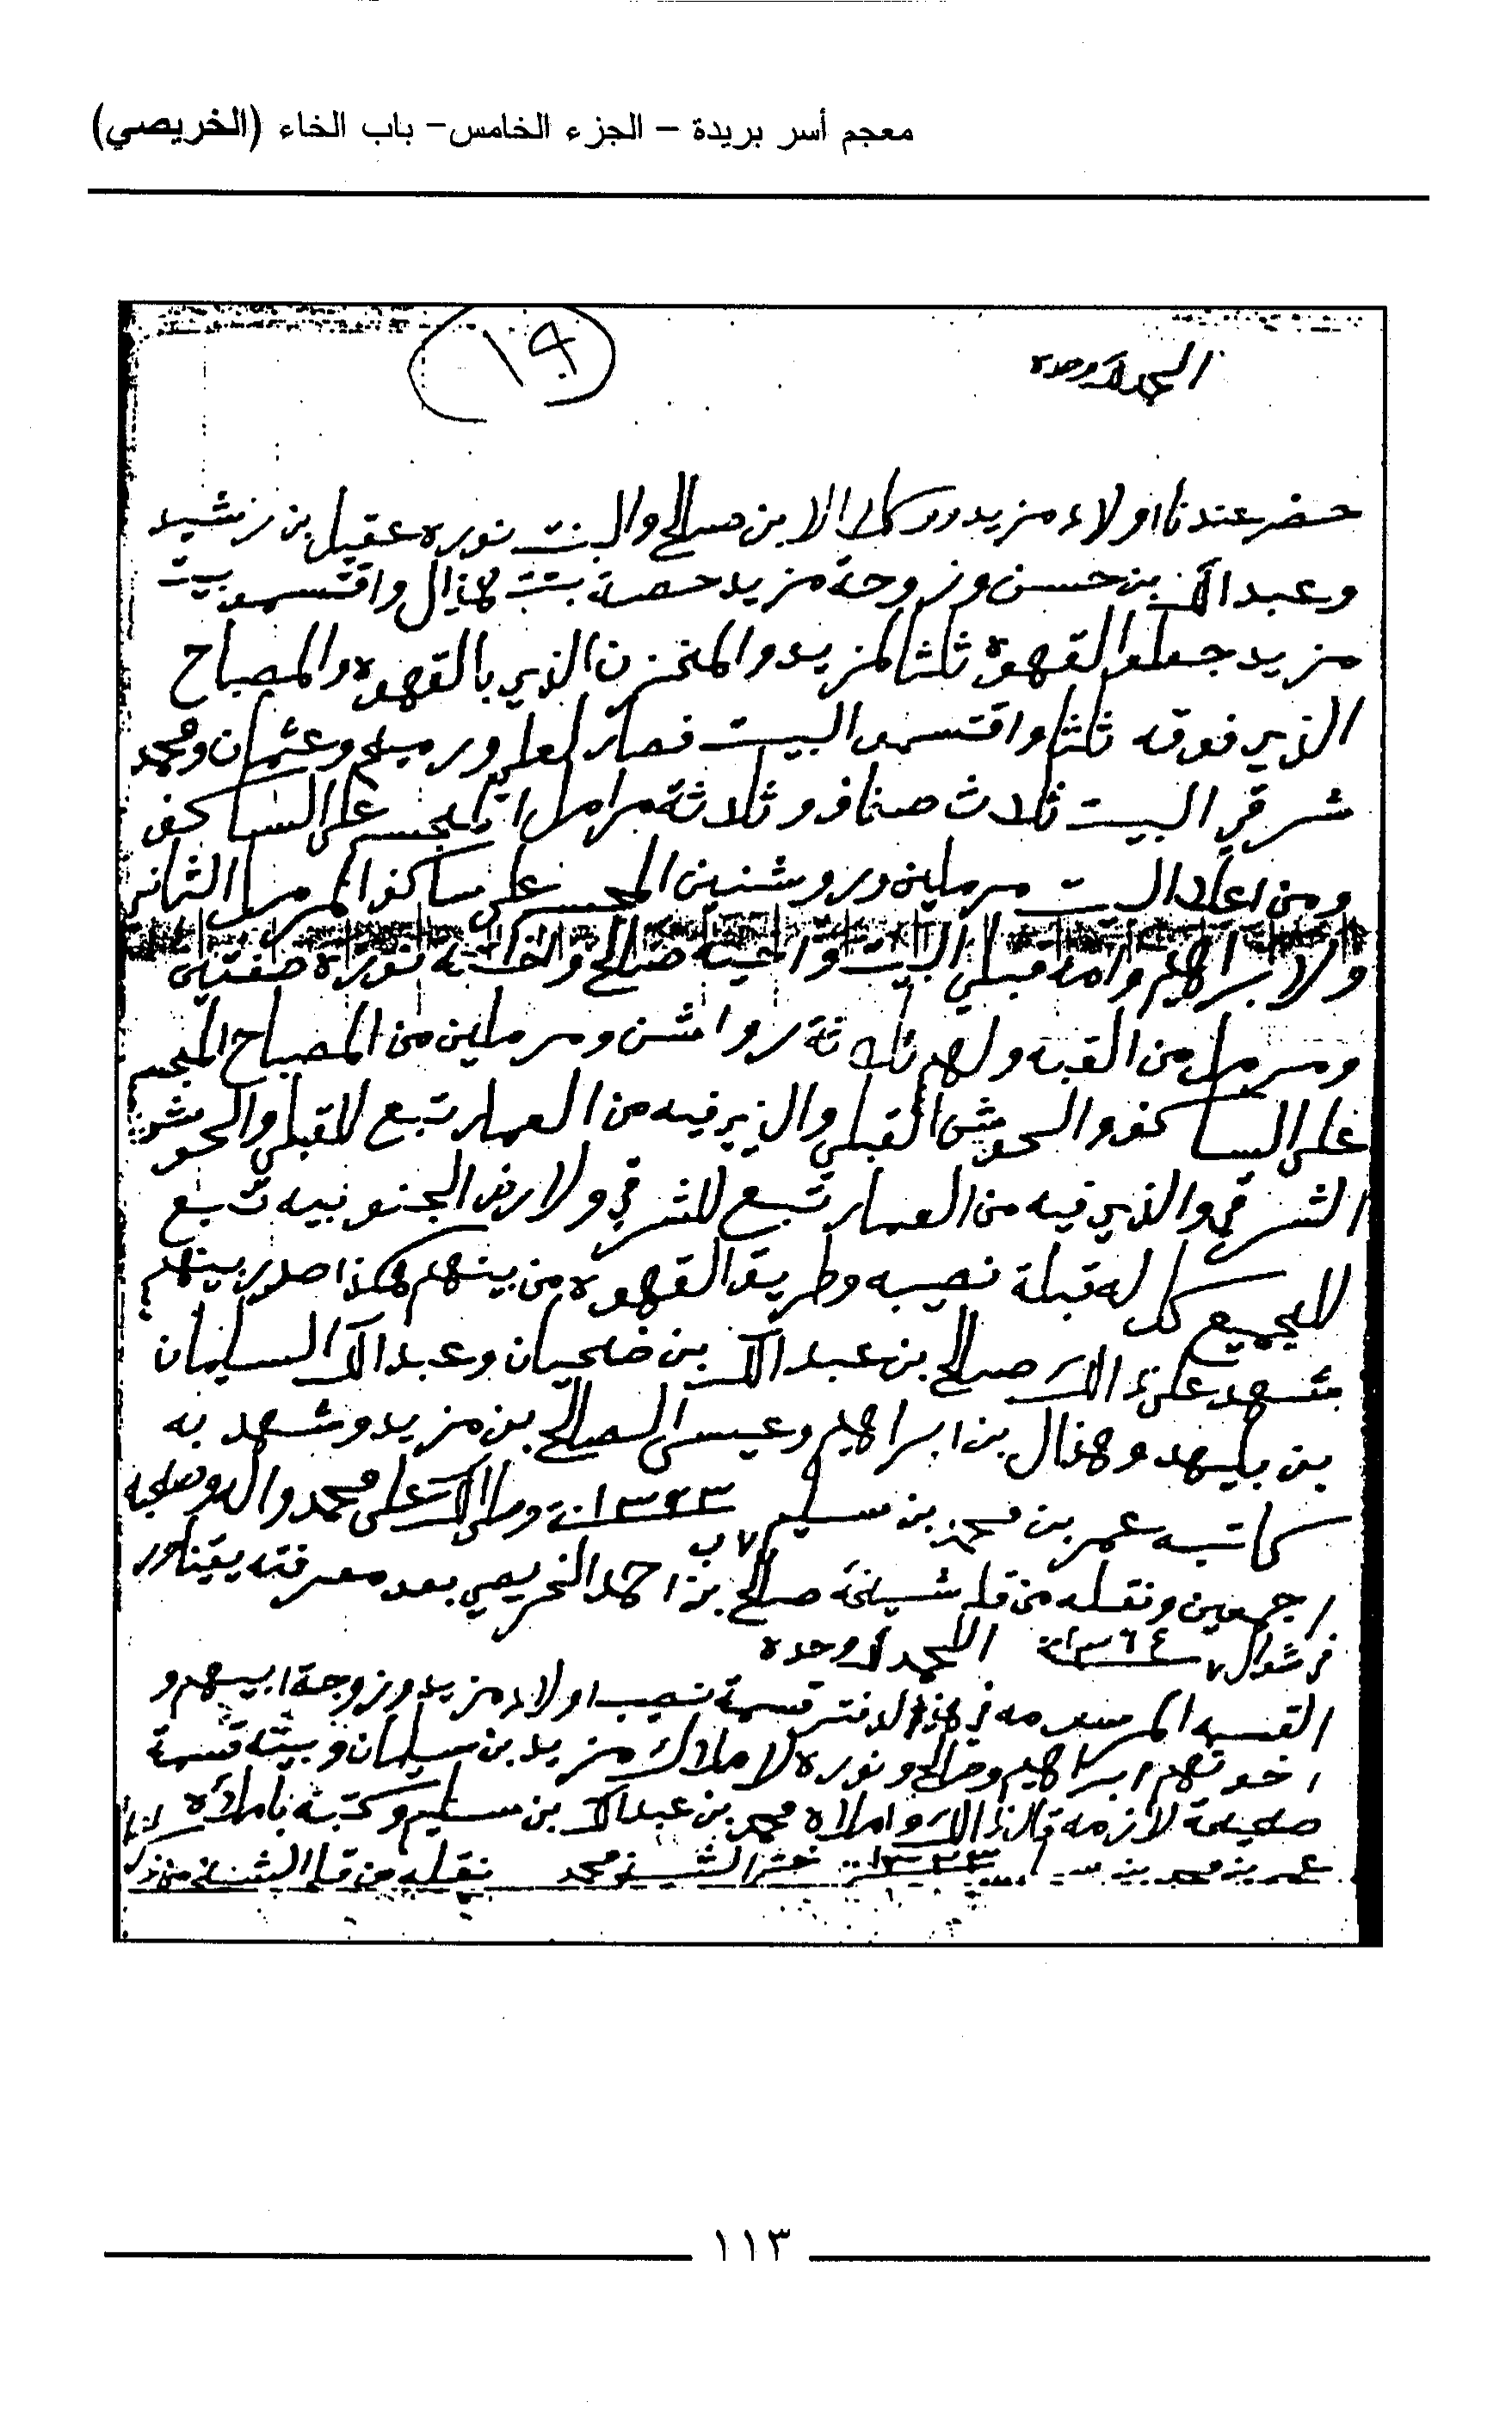 معجم أسر بريدة – الجزء الخامس– باب الخاء (الخريصي)
١٩
الحمد لله وحده
حضر عندنا اولاد مزيد ووكلا الابن صالح والبنت نوره عقيل بن رشيد
وعبدالله بن حسن وزوجة مزيد حصة بنت هذال واقتسمو بيت
مزيد جعلو القهوه ثلثا لمزيد والمخزن الذي بالقهوه والمصباح
الذي فوقه ثلثا واقتسمو البيت فصار لعلي ورميح وعثمان ومحمد
شرقي البيت ثلاث صفاف وثلاثة مرامل على الساكف
ومن اعلا البيت مرملين وروشنين على ساكف المرمل الثاني
ولابراهيم وامه قبلي البيت واخيه صالح واخته نوره صفتين
ومرمل من القبه ولهم ثلاثة رواشن ومرملين من المصباح
على الساكف والحوش القبلي والذي فيه من العمار تبع للقبلي والحوش
الشرقي والذي فيه من العمار تبع للشرقي ولارض الجنوبيه تبع
للجميع كل له قبلة نصيبه وطريق القهوه من بينهم هكذا صدر بينهم
شهد على ذالك صالح بن عبدالله بن ضحيان وعبدالله السليمان
بن وهذال بن ابراهيم وعيسى الصالح بن مزيد وشهد به
كاتبه عمر بن محمد بن سليم ١٣٢٣ وصلى الله على محمد واله وصحبه
اجمعين ونقله من قلم شيخه صالح بن احمد الخريصي بعد معرفته يقينا
في شوال ١٣٦٤ الحمد لله وحده
القسمه المرسومه في هذا الدفتر قسمة نصيب اولاد مزيد وزوجة ابيهم و
اخوتهم ابراهيم وصالح ونوره لاملاك مزيد بن سليمان وبيته قسمة
صحيحة لازمه قال ذالك واملاه محمد بن عبدالله بن سليم وكتبه باملائه
عمر بن محمد بن سليم ١٣٢٣ الشيخ محمد نقله من قلم الشيخ
١١٣